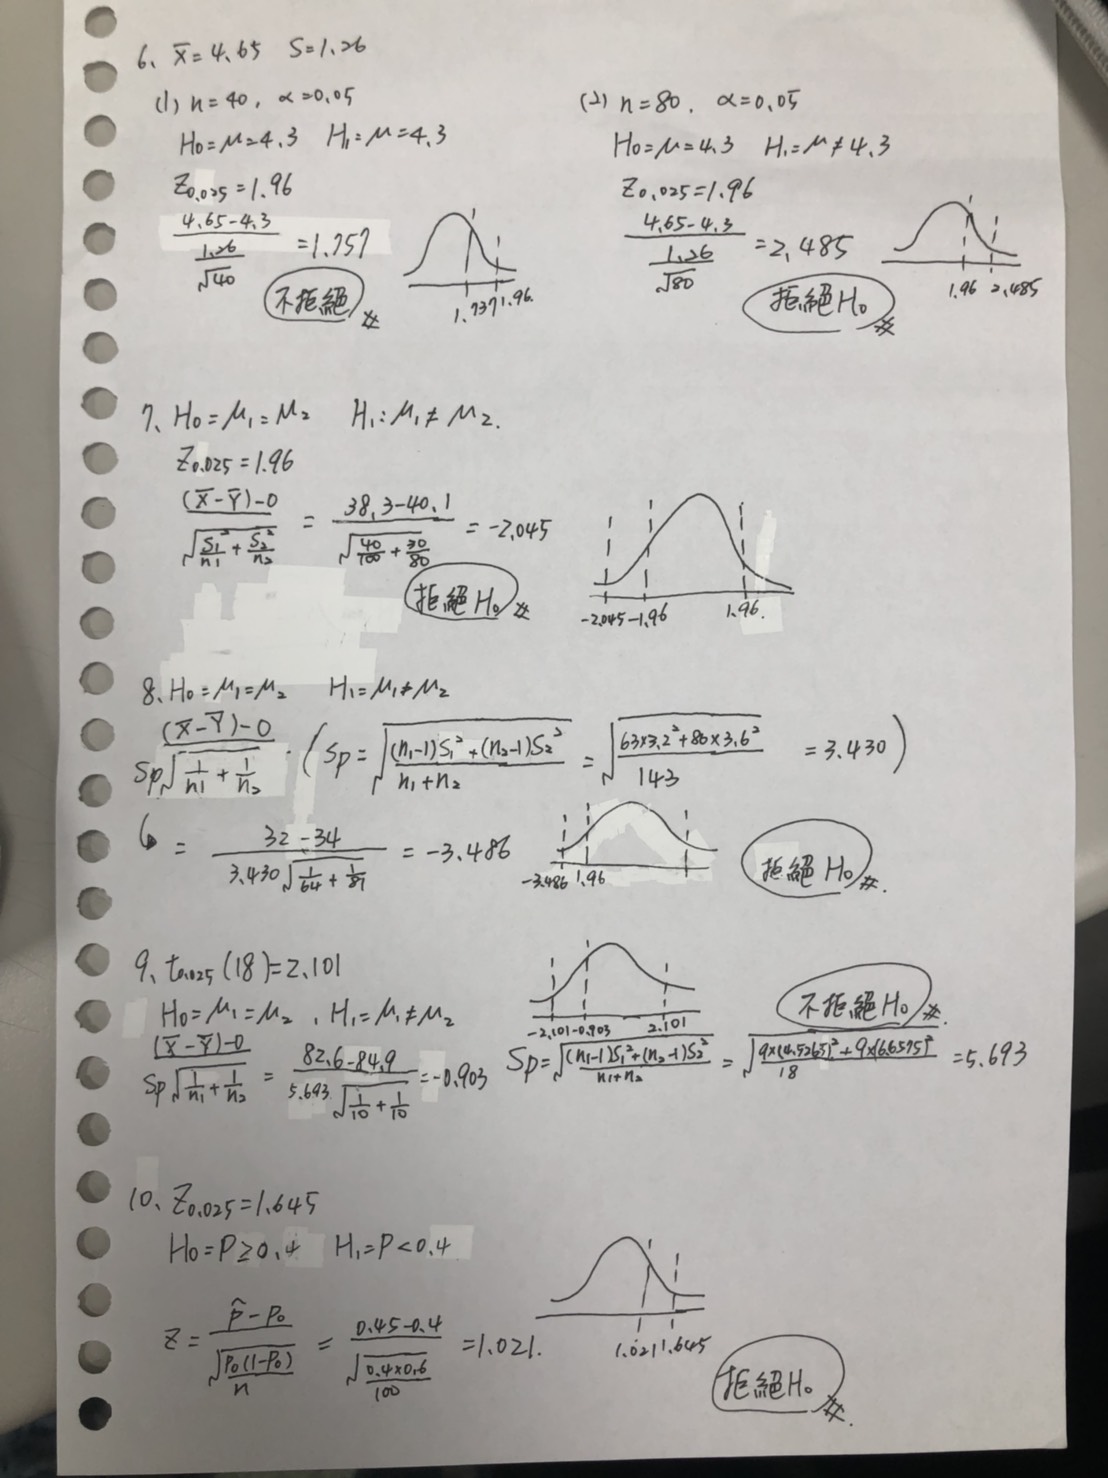 6、 x̄=4.65 S=1.26
(1) n=40, α=0.05
H₀=μ=4.3 H₁=μ=4.3
Z₀.₀₂₅=1.96
(4.65-4.3)/(1.26/√40) =1.757
不拒絕
1.737 1.96.
(2) n=80, α=0.05
H₀=μ=4.3 H₁=μ≠4.3
Z₀.₀₂₅=1.96
(4.65-4.3)/(1.26/√80) =2.485
拒絕H₀
1.96 2.485
7、H₀=μ₁=μ₂ H₁:μ₁≠μ₂.
Z₀.₀₂₅=1.96
((X̄-Ȳ)-0)/√(S₁²/n₁+S₂²/n₂) = (38.3-40.1)/√(40/100+30/80) = -2.045
拒絕H₀
-2.045 -1.96 1.96.
8、H₀=μ₁=μ₂ H₁=μ₁≠μ₂
((X̄-Ȳ)-0)/(Sp√(1/n₁+1/n₂)) . (Sp=√(((n₁-1)S₁²+(n₂-1)S₂²)/(n₁+n₂)) = √((63×3.2²+80×3.6²)/143) =3.430)
= (32-34)/(3.430√(1/64+1/81)) = -3.486
-3.486 1.96
拒絕H₀
9、t₀.₀₂₅(18)=2.101
H₀=μ₁=μ₂, H₁=μ₁≠μ₂
((X̄-Ȳ)-0)/(Sp√(1/n₁+1/n₂)) = (82.6-84.9)/(5.693√(1/10+1/10)) =-0.903
-2.101 -0.903 2.101
不拒絕H₀
Sp=√(((n₁-1)S₁²+(n₂-1)S₂²)/(n₁+n₂)) = √((9×(4.5265)²+9×(6.6575)²)/18) =5.693
10、Z₀.₀₂₅=1.645
H₀=P≥0.4 H₁=P<0.4
Z= (p̂-P₀)/√(P₀(1-P₀)/n) = (0.45-0.4)/√(0.4×0.6/100) =1.021.
1.021 1.645
拒絕H₀